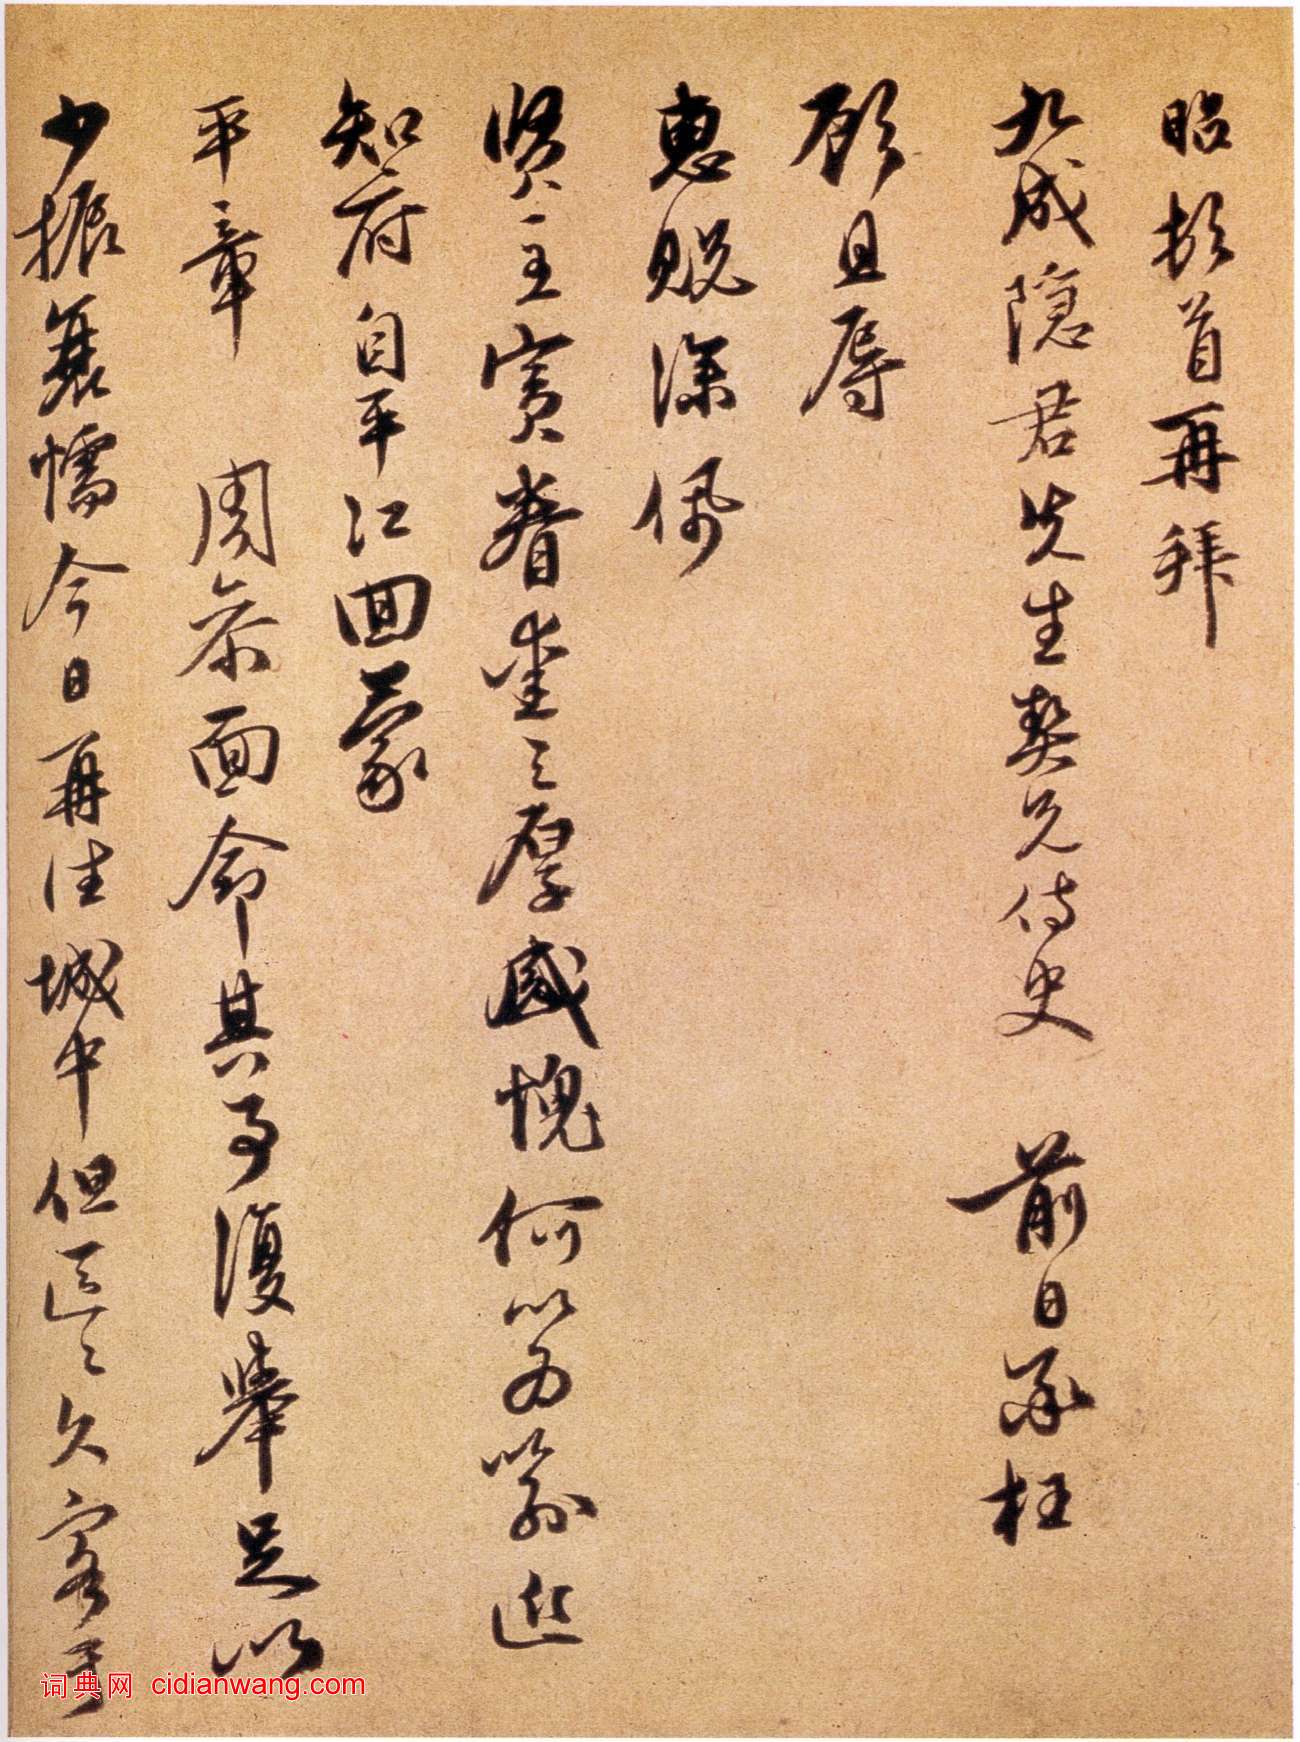 昭頓首再拜
九成隱君先生契兄侍史 前日承枉
顧且辱
惠貺深佩
賢主賓眷壱之厚感愧何以为喻近
知府自平江回蒙
平章 周参面命其子復舉足以
少振衰懦今日再往城中但區〻久客于
词典网 cidianwang.com